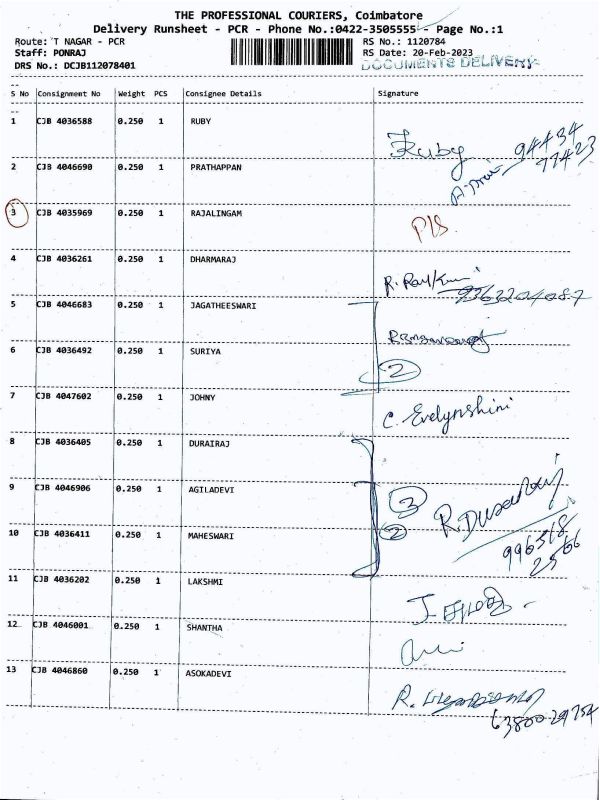 THE PROFESSIONAL COURIERS, Coimbatore
Delivery Runsheet - PCR - Phone No.:0422-3505555 - Page No.:1
Route: T NAGAR - PCR RS No.: 1120784
Staff: PONRAJ RS Date: 20-Feb-2023
DRS No.: DCJB112078401 DOCUMENTS DELIVERY
S No Consignment No Weight PCS Consignee Details Signature
1 CJB 4036588 0.250 1 RUBY Ruby 94434
77423
2 CJB 4046690 0.250 1 PRATHAPPAN
3 CJB 4035969 0.250 1 RAJALINGAM P/S
4 CJB 4036261 0.250 1 DHARMARAJ
9363204087
5 CJB 4046683 0.250 1 JAGATHEESWARI
6 CJB 4036492 0.250 1 SURIYA 2
7 CJB 4047602 0.250 1 JOHNY C. Evelynshini
8 CJB 4036405 0.250 1 DURAIRAJ
9 CJB 4046906 0.250 1 AGILADEVI 3 R. Durairaj
10 CJB 4036411 0.250 1 MAHESWARI 2 996518
2566
11 CJB 4036202 0.250 1 LAKSHMI
12 CJB 4046001 0.250 1 SHANTHA
13 CJB 4046860 0.250 1 ASOKADEVI